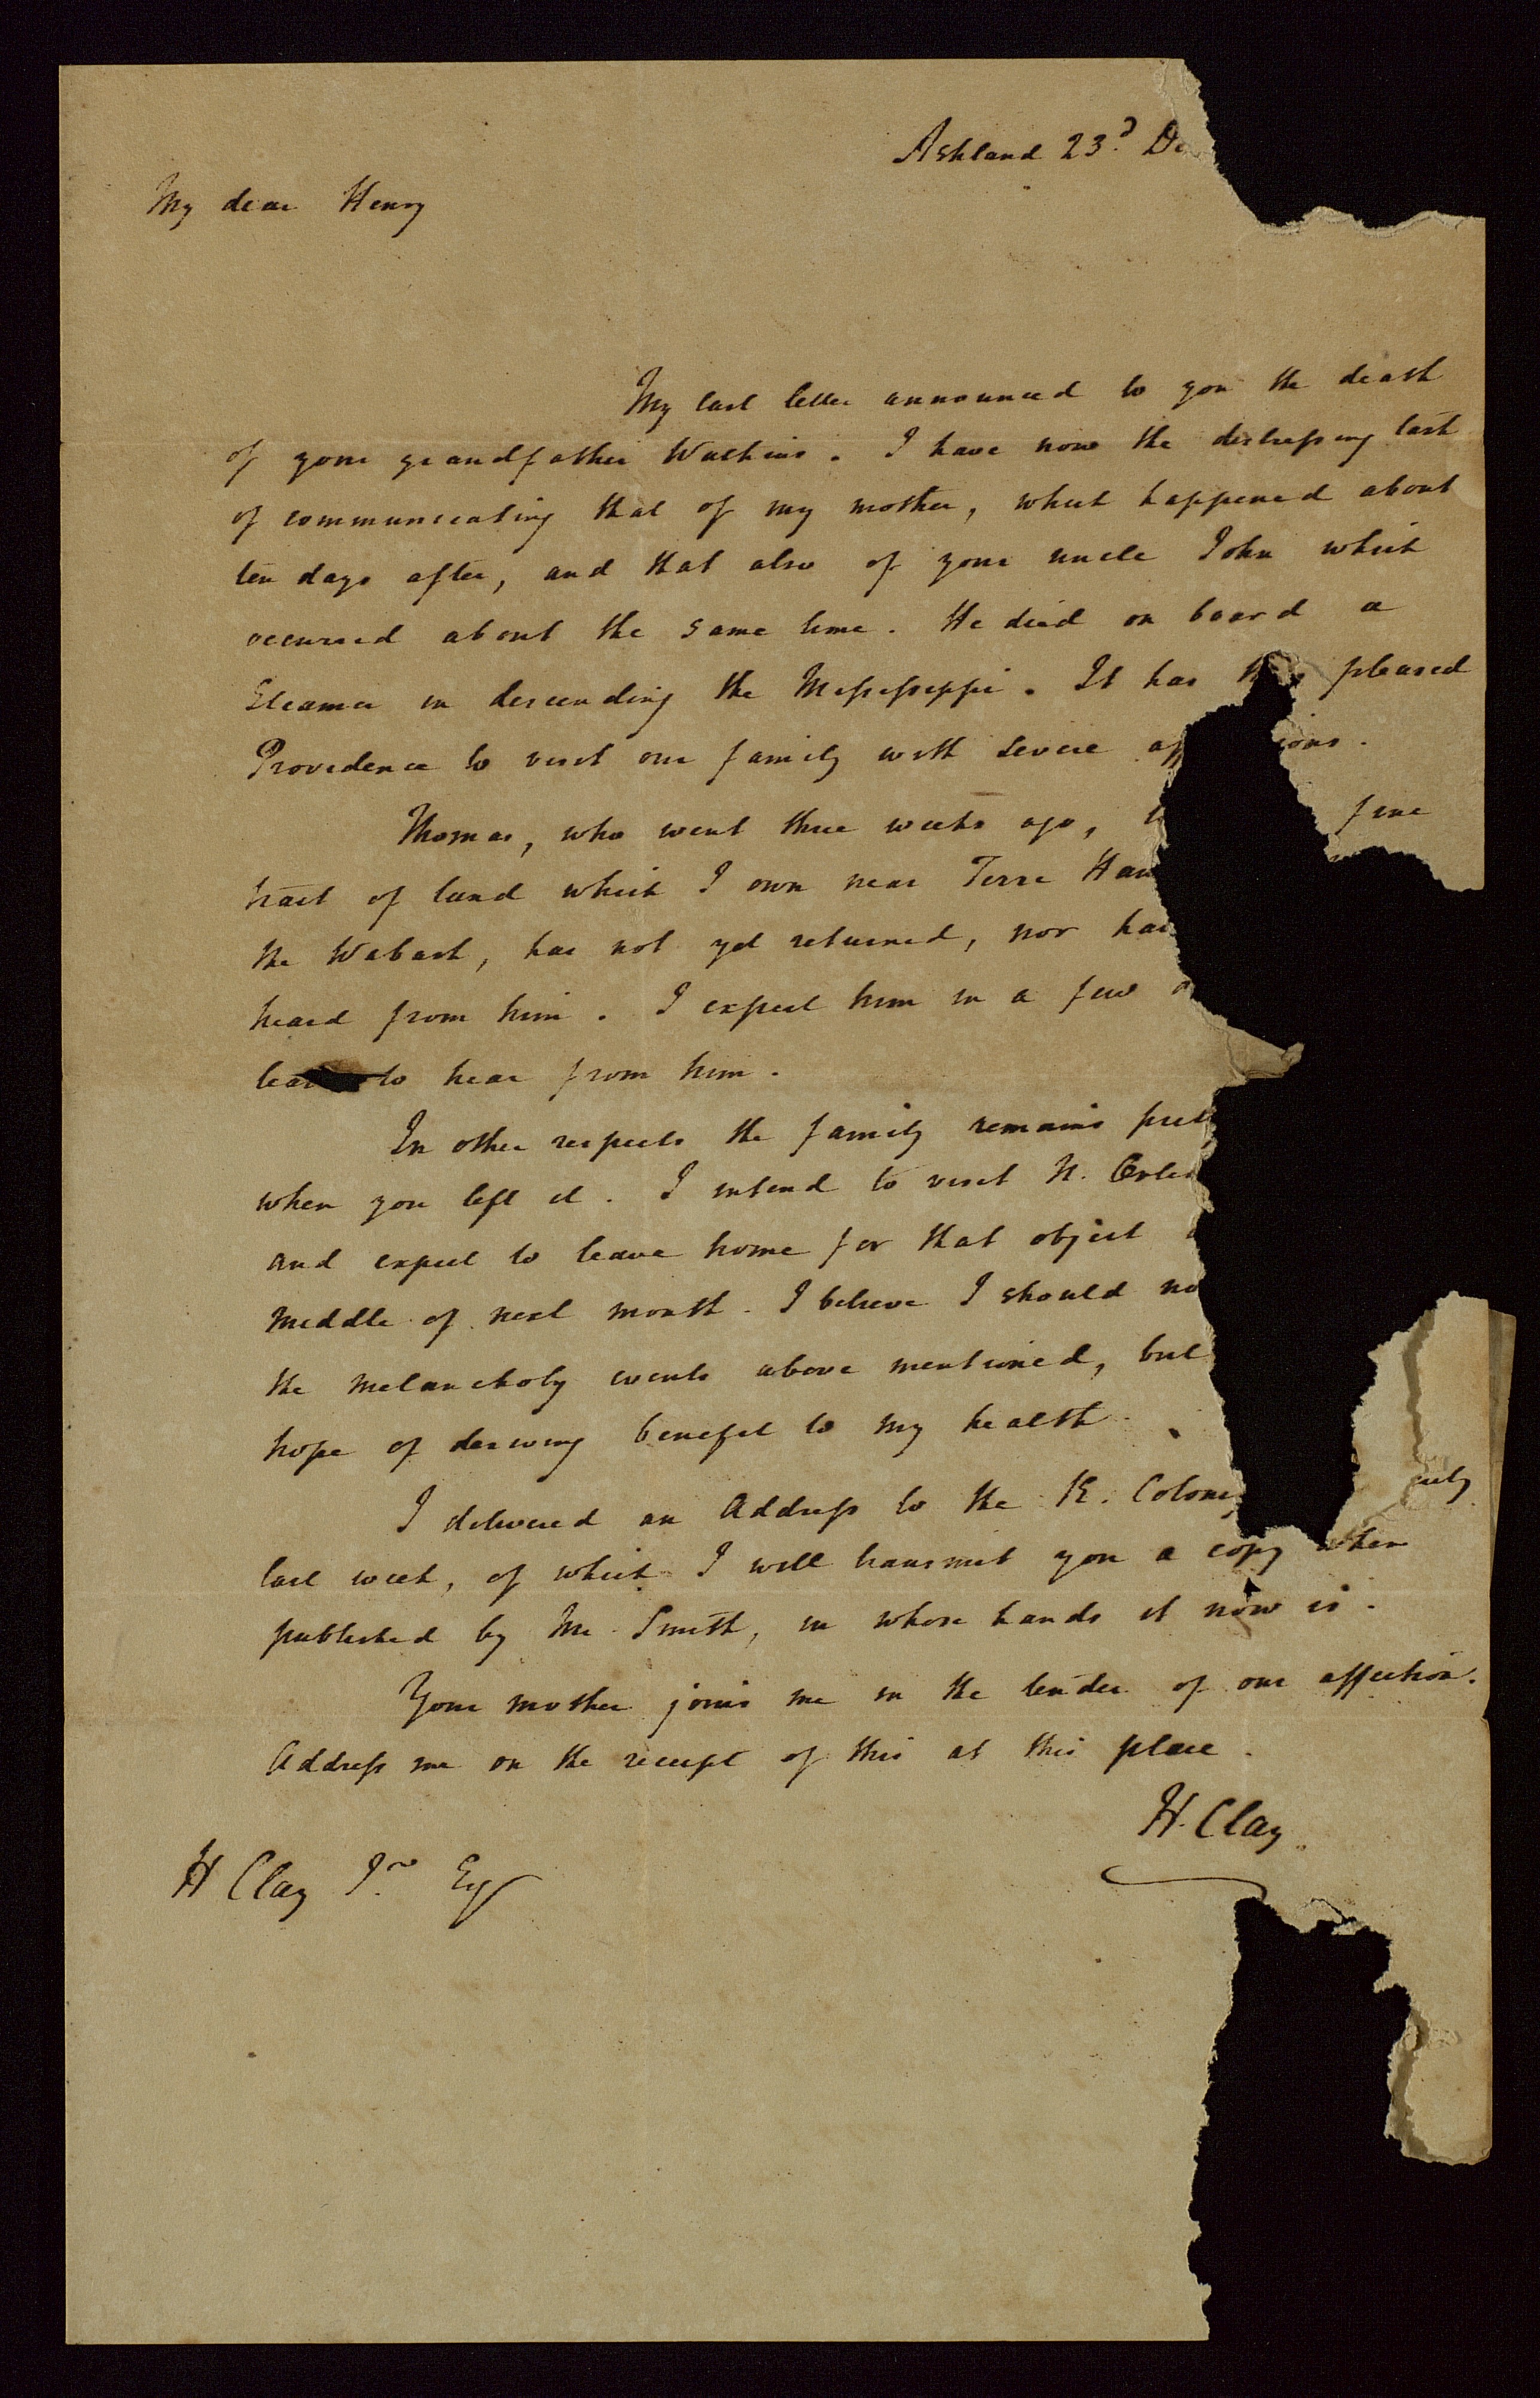 Ashland 23.d De
My dear Henry
My last letter announced to you the death
of your grandfather Watkins. I have now the distressing task
of communicating that of my mother, which happened about
ten days after, and that also of your uncle John which
occurred about the same time. He died on board a
Steamer in descending the Mississippi. It has pleased
Providence to visit our family with severe
Thomas, who went three weeks ago, fine
tract of land which I own near Terre Hau
the Wabash, has not yet returned, nor has
heard from him. I expect him in a few
to hear from him.
In other respects the family remains
when you left it. I intend to visit N. Orlea
and expect to leave home for that object
middle of next month. I believe I should no
the melancholy events above mentioned, but
hope of deriving benefit to my health.
I delivered an Address to the K. Coloni
last week, of which I will transmit you a copy when
published by Mr Smith, in whose hands it now is.
Your mother joins me in the tender of our affection.
Address me on the receipt of this at this place.
H. Clay
H Clay Jr. Esq